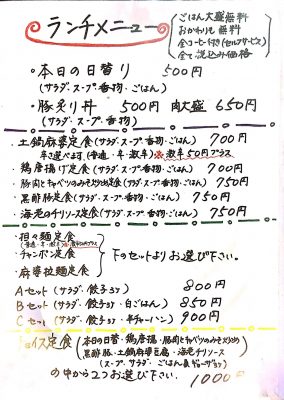 ランチメニュー
ごはん大盛無料
おかわりも無料
全コーヒー付き(セルフサービス)
全て税込み価格
・本日の日替り 500円
(サラダ・スープ・香物・ごはん)
・豚炙り丼 500円 肉大盛 650円
(サラダ・スープ・香物)
・土鍋麻婆定食(サラダ・スープ・香物・ごはん) 700円
辛さ選べます(普通・辛・激辛)※激辛50円プラス
・鶏唐揚げ定食(サラダ・スープ・香物・ごはん) 700円
・豚肉とキャベツのみそ炒め定食(サラダ・スープ・香物・ごはん) 750円
・黒酢豚定食(サラダ・スープ・香物・ごはん) 750円
・海老のチリソース定食(サラダ・スープ・香物・ごはん) 750円
・担々麺定食
(普通・辛・激辛)※激辛50円プラス
・チャンポン定食
・麻婆拉麺定食
下のセットよりお選び下さい。
Aセット(サラダ・餃子3ヶ) 800円
Bセット(サラダ・餃子3ヶ・白ごはん) 850円
Cセット(サラダ・餃子3ヶ・半チャーハン) 900円
イス定食
(本日の日替・鶏唐揚・豚肉とキャベツのみそ炒め
黒酢豚・土鍋麻婆豆腐・海老チリソース
(スープ・サラダ・ごはん
の中から2つお選び下さい。 1000円